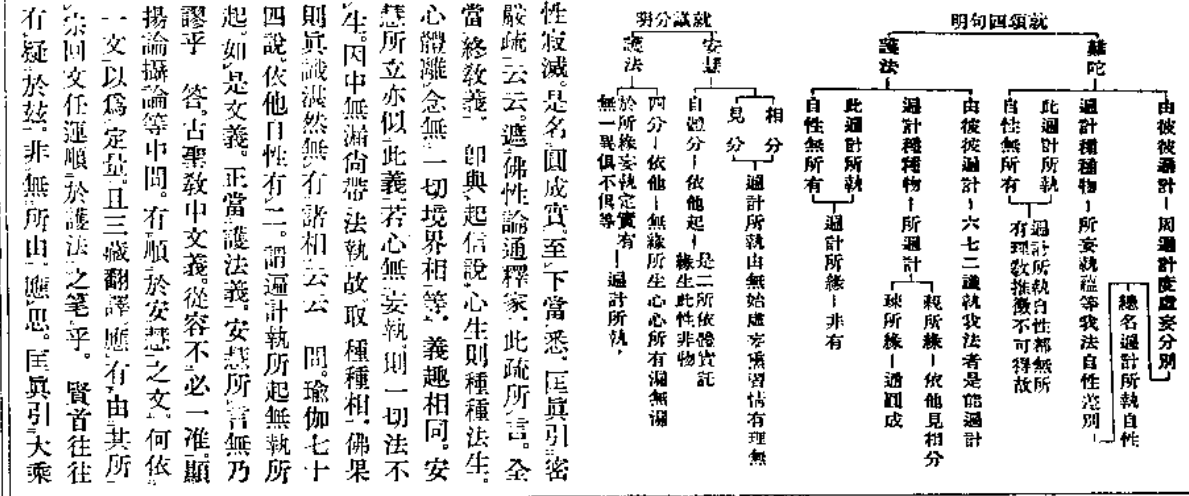 就頌四句明
難陀
由彼彼遍計 周遍計度虛妄分別
遍計種種物 所妄執蘊等我法自性差別
總名遍計所執自性
此遍計所執
自性無所有
遍計所執自性都無所
有理敎推徵不可得故
護法
由彼彼遍計 六七二識執我法者是能遍計
遍計種種物 所遍計
親所緣 依他見相分
疎所緣 通圓成
此遍計所執
自性無所有
遍計所緣 非有
就識分明
安慧
相分
見分
遍計所執由無始虛妄熏習情有理無
自體分 依他起
是二所依體實託
緣生此性非物
護法
四分 依他 無緣所生心心所有漏無漏
於所緣妄執定實有
無一異俱不俱等
遍計所執
性寂滅。是名圓成實。至下當悉。匡眞引密
嚴疏云云。遮佛性論通釋家。此疏所言。全
當終敎義。卽與起信說心生則種種法生。
心體離念無一切境界相等。義趣相同。安
慧所立亦似此義若心無妄執則一切法不
生。因中無漏尚帶法執故。取種種相。佛果
則眞識湛然無有諸相云云 問。瑜伽七十
四說。依他自性有二。謂遍計執所起無執所
起。如是文義。正當護法義。安慧所言無乃
謬乎 答。古聖敎中文義。從容不必一准。顯
揚論攝論等中間。有順於安慧之文。何依
一文以爲定量。且三藏翻譯應有由其所
宗回文任運順於護法之筆乎。 賢首往往
有疑於茲。非無所由。應思。匡眞引大乘